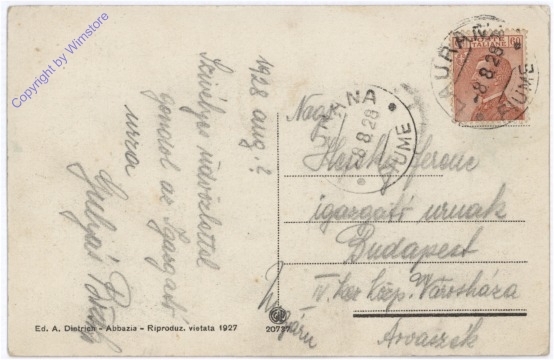 Copyright by Wimstore
1928 aug. 7
Szivélyes üdvözlettel
gondol az Igazgató
urra
Gulyás
LAURANA
8.8.28
FIUME
60
ITALIANE
LAURANA
8 8.28
FIUME
Nagy.
Ferenc
igazgató urnak
Budapest
IV. ker Közp. Városháza
Árvaszék
Ungaru
Ed. A. Dietrich - Abbazia - Riproduz. vietata 1927
20737